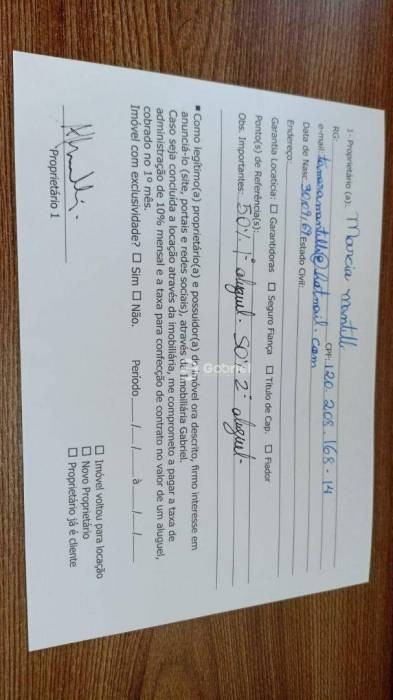 1- Proprietário (a): Marcia Mantelli
RG: CPF: 120.208.168-14
e-mail: tamaramantelli@hotmail.com
Data de Nasc: 30,09,69 Estado Civil:
Endereço:
Garantia Locatícia: ☐ Garantidoras ☐ Seguro Fiança ☐ Título de Cap. ☐ Fiador
Ponto(s) de Referência(s):
Obs. Importantes: 50% 1º aluguel. 50% 2º aluguel.
▪ Como legítimo(a) proprietário(a) e possuidor(a) do imóvel ora descrito, firmo interesse em
anunciá-lo (site, portais e redes sociais), através da Imobiliária Gabriel.
Caso seja concluída a locação através da imobiliária, me comprometo a pagar a taxa de
administração de 10% mensal e a taxa para confecção de contrato no valor de um aluguel,
cobrado no 1º mês.
Imóvel com exclusividade? ☐ Sim ☐ Não. Período ___/___/___ à ___/___/___
☐ Imóvel voltou para locação
☐ Novo Proprietário
☐ Proprietário já é cliente
*Proprietário 1
Gabriel